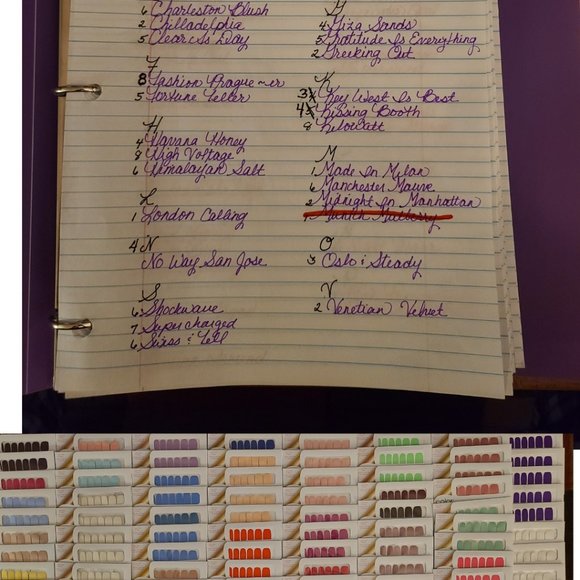 6 Charleston Blush
2 Chilladelphia
5 Clear As Day
F
8 Fashion Prague-ner
5 Fortune Teller
H
4 Havana Honey
8 High Voltage
6 Himalayan Salt
L
1 London Calling
4 N
No Way San Jose
S
6 Shockwave
7 Supercharged
6 Swiss & Tell
G
4 Giza Sands
5 Gratitude Is Everything
2 Greeking Out
K
3 Key West Is Best
4 Kissing Booth
8 Kilowatt
M
1 Made In Milan
6 Manchester Mauve
2 Midnight In Manhattan
1 Munich Mulberry
O
3 Oslo & Steady
V
2 Venetian Velvet